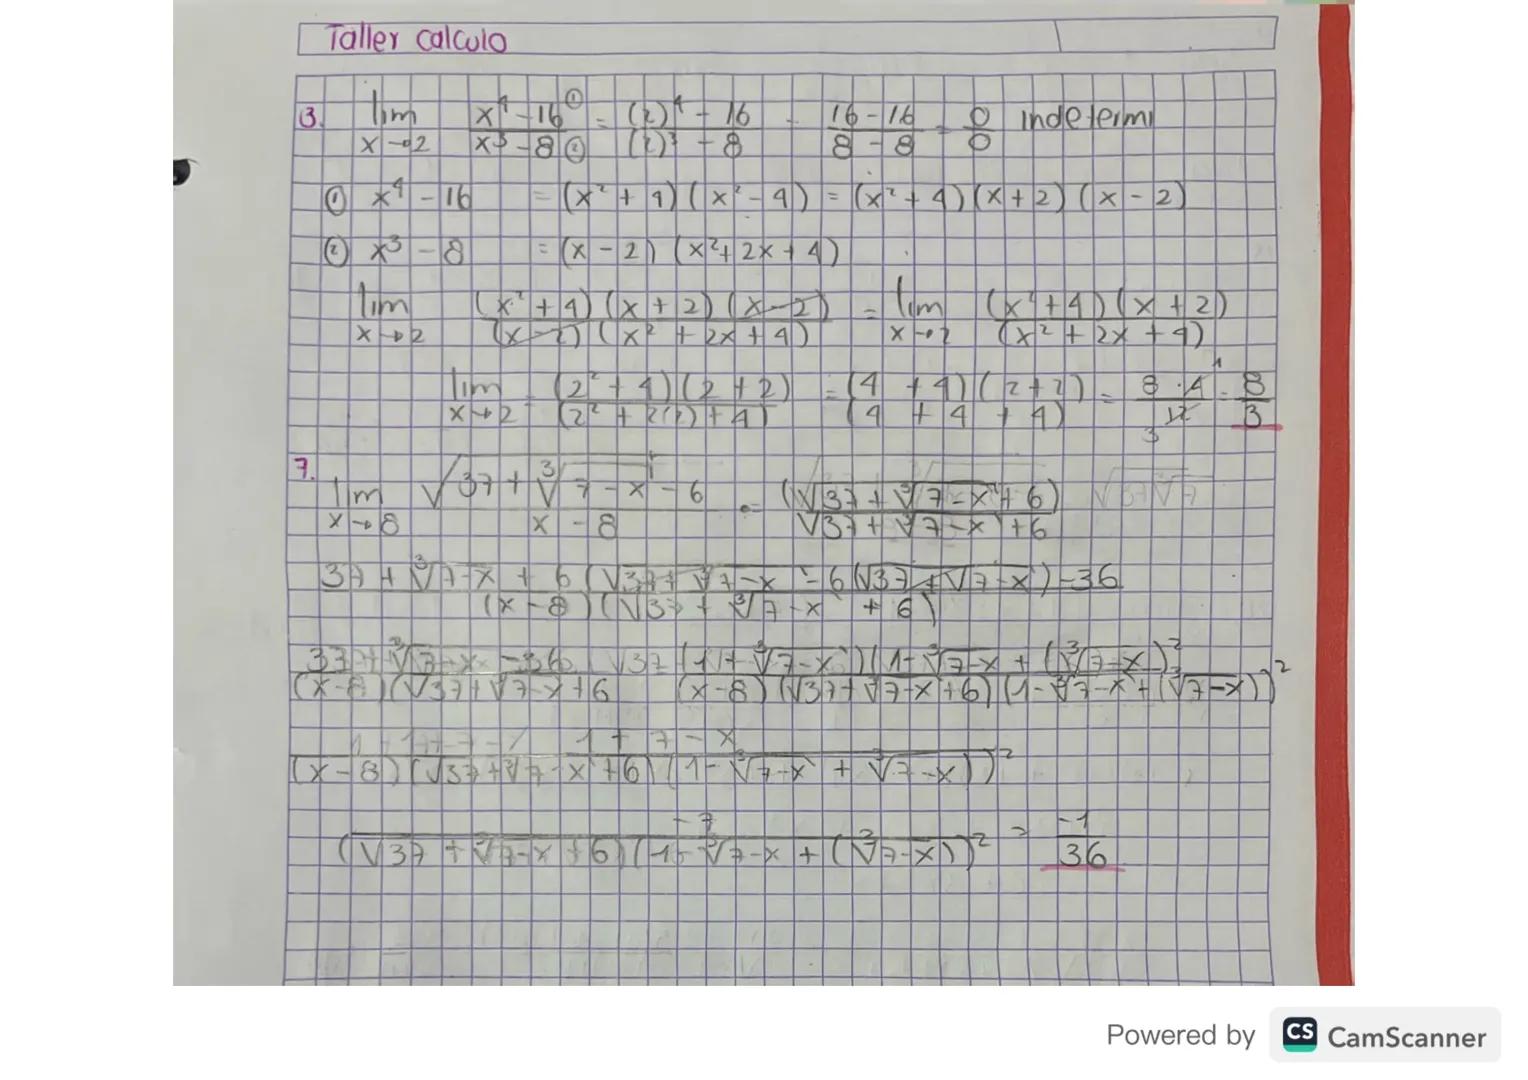 Taller calculo
3. lim x→2 (x⁴ - 16 ①)/(x³ - 8 ②) = ((2)⁴ - 16)/((2)³ - 8) - (16 - 16)/(8 - 8) = 0/0 indetermi
① x⁴ - 16 = (x² + 4)(x² - 4) = (x² + 4)(x + 2)(x - 2)
② x³ - 8 = (x - 2)(x² + 2x + 4)
lim x→2 ((x² + 4)(x + 2)(x - 2))/((x - 2)(x² + 2x + 4)) = lim x→2 ((x² + 4)(x + 2))/(x² + 2x + 4)
lim x→2 ((2² + 4)(2 + 2))/(2² + 2(2) + 4) = ((4 + 4)(2 + 2))/(4 + 4 + 4) = (8 · 4 1)/(12 3) = 8/3
7. lim x→8 (√(37 + ∛(7 - x)) - 6)/(x - 8) = (√(37 + ∛(7 - x)) + 6)/(√(37 + ∛(7 - x)) + 6)
(37 + ∛(7 - x) + 6(√(37 + ∛(7 - x)) - 6(√(37 + √(7 - x))) - 36)/((x - 8)(√(37 + ∛(7 - x)) + 6)
(37 + ∛(7 - x) - 36)/((x - 8)(√(37 + √(7 - x)) + 6) √37 (1 + ∛(7 - x))(1 - ∛(7 - x) + (∛(7 - x))²/((x - 8)(√(37 + ∛(7 - x)) + 6)(1 - ∛(7 - x) + (∛(7 - x)))²
(1 + 7 - x)/((x - 8)(√(37 + ∛(7 - x)) + 6)(1 - ∛(7 - x) + ∛(7 - x)))²
-7/((√(37 + ∛(7 - x)) + 6)(1 - ∛(7 - x) + (∛(7 - x)))² = -1/36
Powered by CS CamScanner